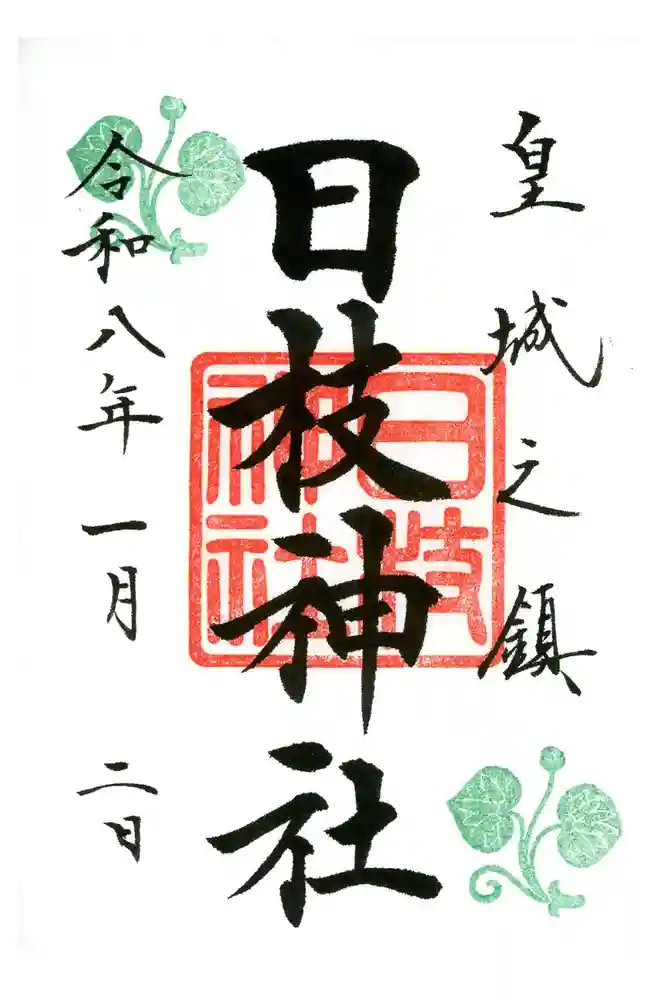 皇城之鎮
日枝神社
日枝神社
令和八年一月二日